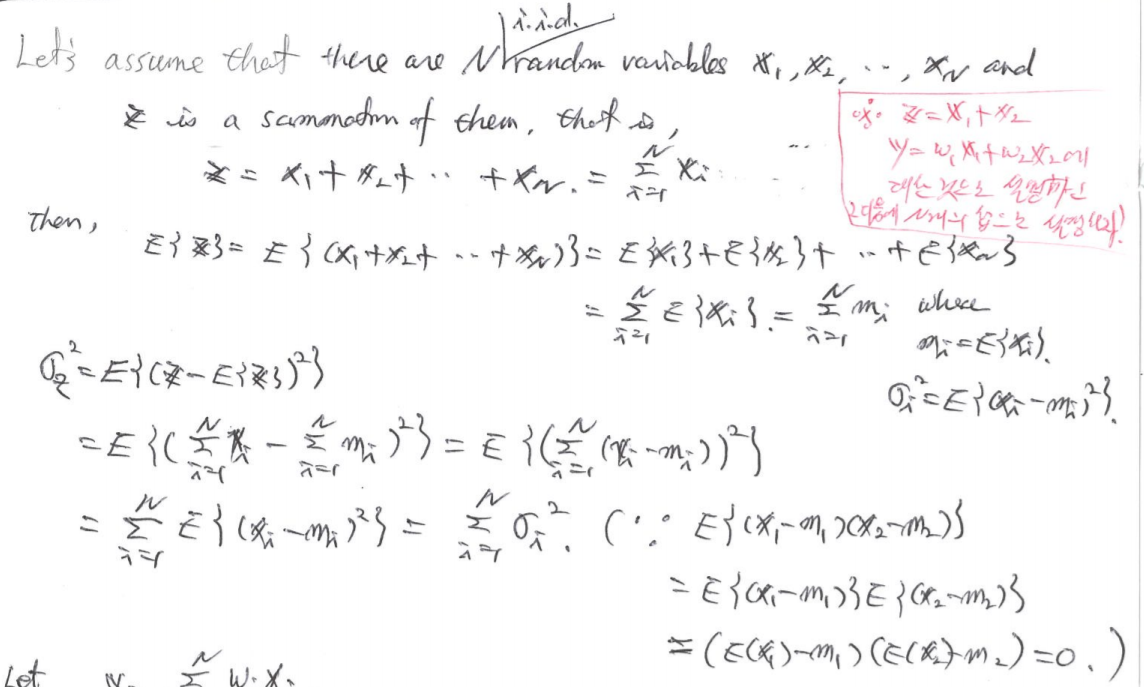 i.i.d.
Let's assume that there are N random variables x₁, x₂, ‥, x_N and
z is a summation of them, that is,
z = x₁ + x₂ + ‥ + x_N. = Σ_{i=1}^{N} x_i
ex. z = x₁ + x₂
y = w₁x₁ + w₂x₂ 에
대한 것으로 설명하고
Then,
E{z} = E{(x₁+x₂+ ‥ +x_N)} = E{x₁}+E{x₂}+ ‥ +E{x_N}
= Σ_{i=1}^{N} E{x_i}. = Σ_{i=1}^{N} m_i where
m_i = E{x_i}.
σ_z² = E{(z − E{z})²}
σ_i² = E{(x_i − m_i)²}.
= E{(Σ_{i=1}^{N} x_i − Σ_{i=1}^{N} m_i)²} = E{(Σ_{i=1}^{N} (x_i − m_i))²}
= Σ_{i=1}^{N} E{(x_i − m_i)²} = Σ_{i=1}^{N} σ_i². (∵ E{(x₁−m₁)(x₂−m₂)}
= E{(x₁−m₁)}E{(x₂−m₂)}
= (E(x₁)−m₁)(E(x₂)−m₂) = 0.)
Let Σ^{N} w_i x_i